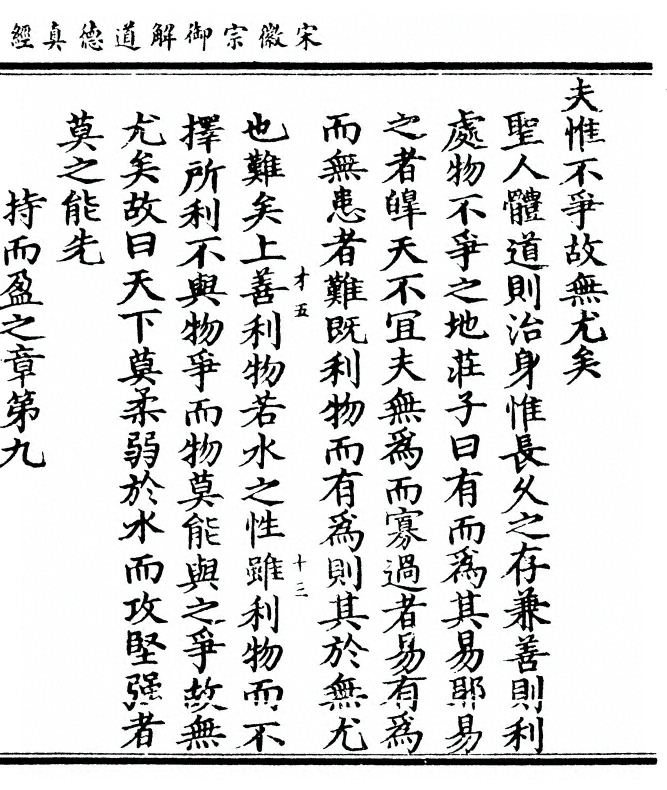 宋徽宗御解道德真經
夫惟不爭故無尤矣
聖人體道則治身惟長久之存兼善則利
處物不爭之地莊子曰有而為其易耶易
之者皡天不宜夫無為而寡過者易有為
而無患者難既利物而有為則其於無尤
也難矣上善利物若水之性雖利物而不
擇所利不與物爭而物莫能與之爭故無
尤矣故曰天下莫柔弱於水而攻堅强者
莫之能先
持而盈之章第九
才五
十三